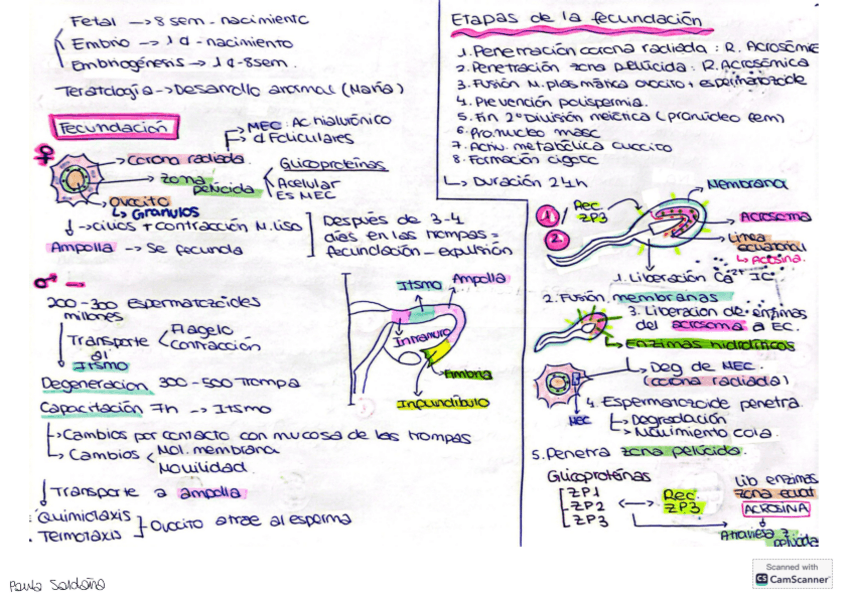 Fetal → 8 sem - nacimiento
Embrio → 1 d - nacimiento
Embriogénesis → 1 d - 8 sem.
Teratología → Desarrollo anormal (María)
Fecundación
MEC: Ac hialurónico
d Foliculares
Corona radiada
Zona pelúcida
Glicoproteínas
Acelular
Es MEC
Ovocito
↳ Granulos
↓ → cilios + contracción M. liso
Ampolla → Se fecunda
Después de 3-4
días en las trompas =
fecundación - expulsión
200-300 espermatozoides
millones
Transporte
al
Itsmo
Flagelo
contracción
Degeneracion 300-500 Trompa
Capacitación 7h → Itsmo
↳ Cambios por contacto con mucosa de las trompas
↳ Cambios
Mol. membrana
Movilidad
Transporte a ampolla
Quimiotaxis
Termotaxis
Ovocito atrae al esperma
Itsmo
Ampolla
Intramuro
Fimbria
Infundíbulo
Etapas de la fecundación
1. Penetración corona radiada: R. Acrosómic
2. Penetración zona pelúcida: R. Acrosómica
3. Fusión M. plasmática ovocito + espermatozoide
4. Prevención polispermia.
5. Fin 2º División meiótica (pronúcleo fem)
6. Pronucleo masc
7. Activ. metabólica ovocito
8. Formación cigoto
↳ Duración 24h
Membrana
1 / Rec
ZP3
2
Acrosoma
Linea
ecuatorial
↳ Acrosina.
1. Liberación Ca²⁺ IC
2. Fusión membranas
3. Liberación de enzimas
del acrosoma a EC.
↳ Enzimas hidrolíticas
Deg de MEC.
(corona radiada)
MEC
4. Espermatozoide penetra
↳ Degradación
↳ Movimiento cola.
5. Penetra zona pelúcida.
Glicoproteínas
ZP1
ZP2
ZP3
Rec.
ZP3
Lib enzimas
zona ecuat
ACROSINA
Atraviesa z
pelúcida
Paula Saldaña
Scanned with
CS CamScanner